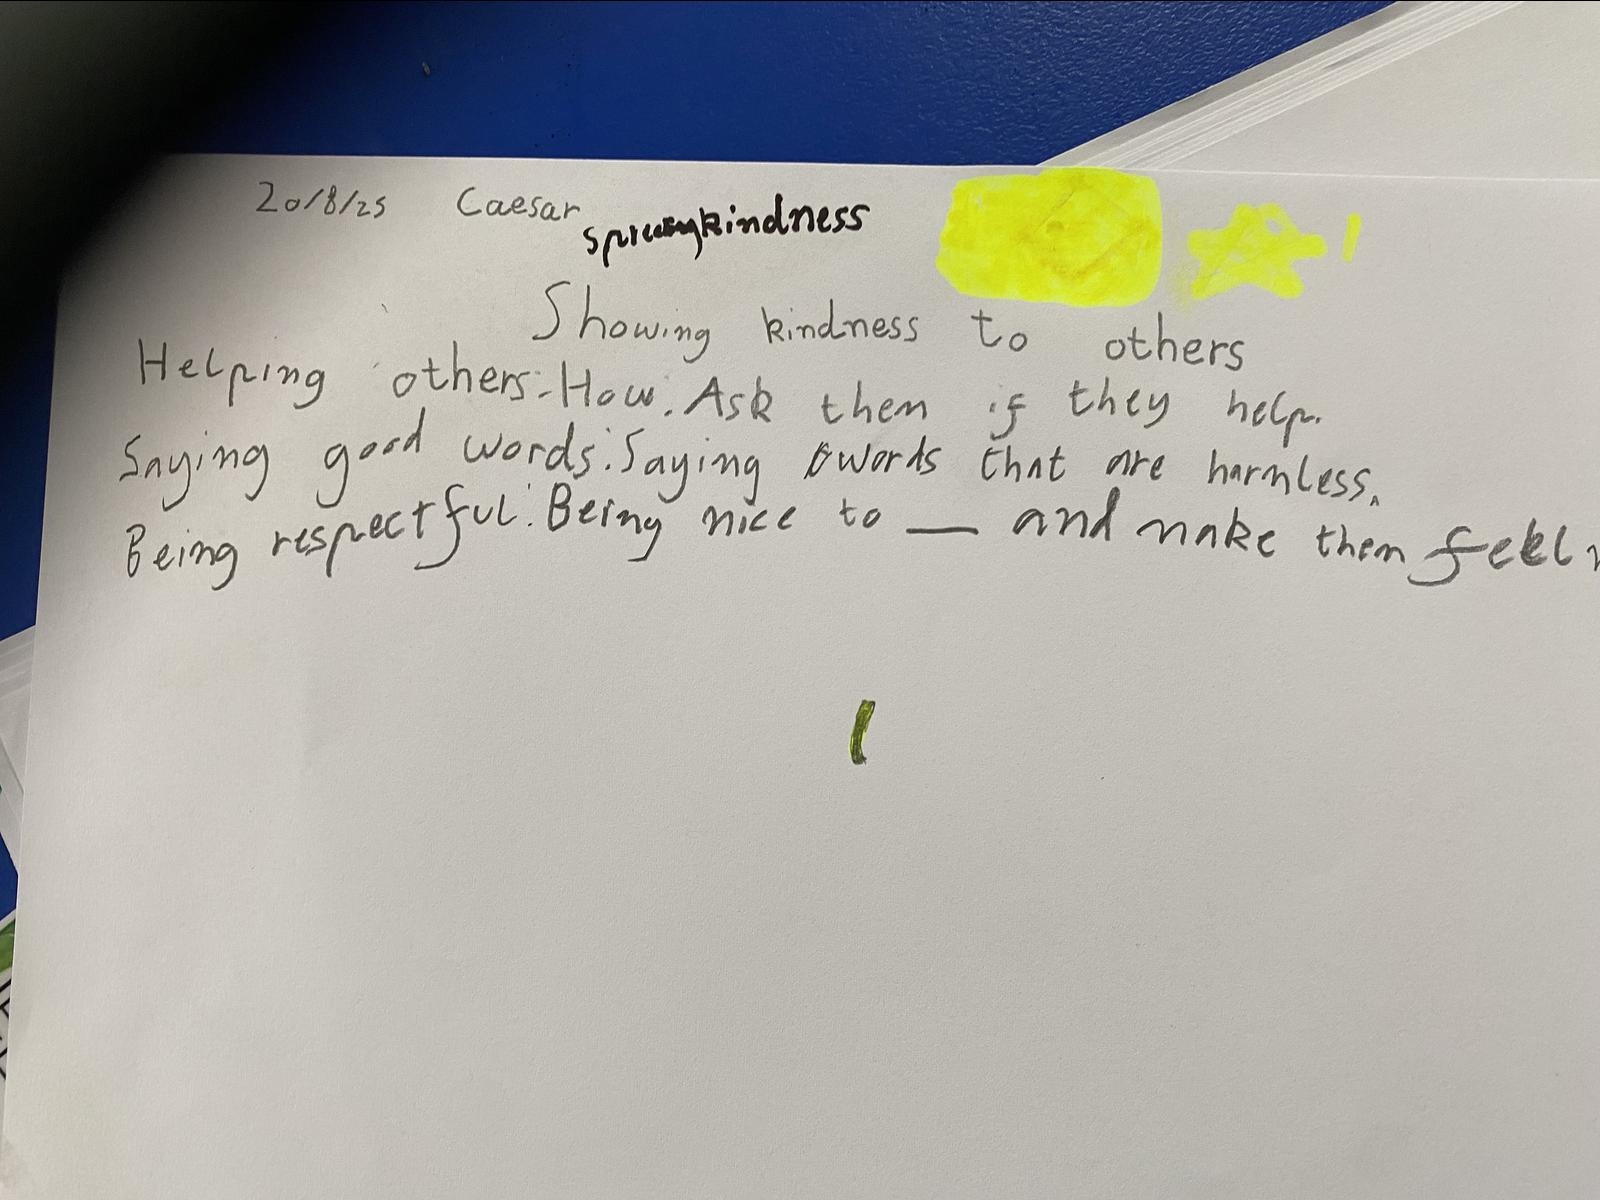 20/8/25 Caesar
kindness
Showing kindness to others
Helping others:How: Ask them if they help.
Saying good words:Saying words that are harmless.
Being respectful:Being nice to __ and make them feel